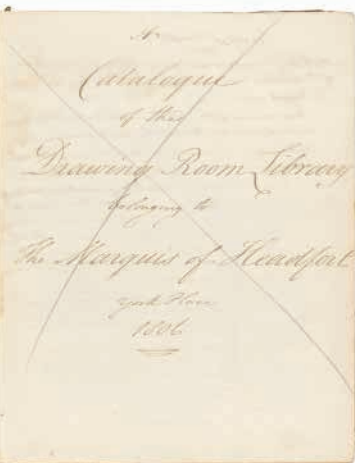 A
Catalogue
of the
Drawing Room Library
belonging to
The Marquis of Headfort
York Place
1806